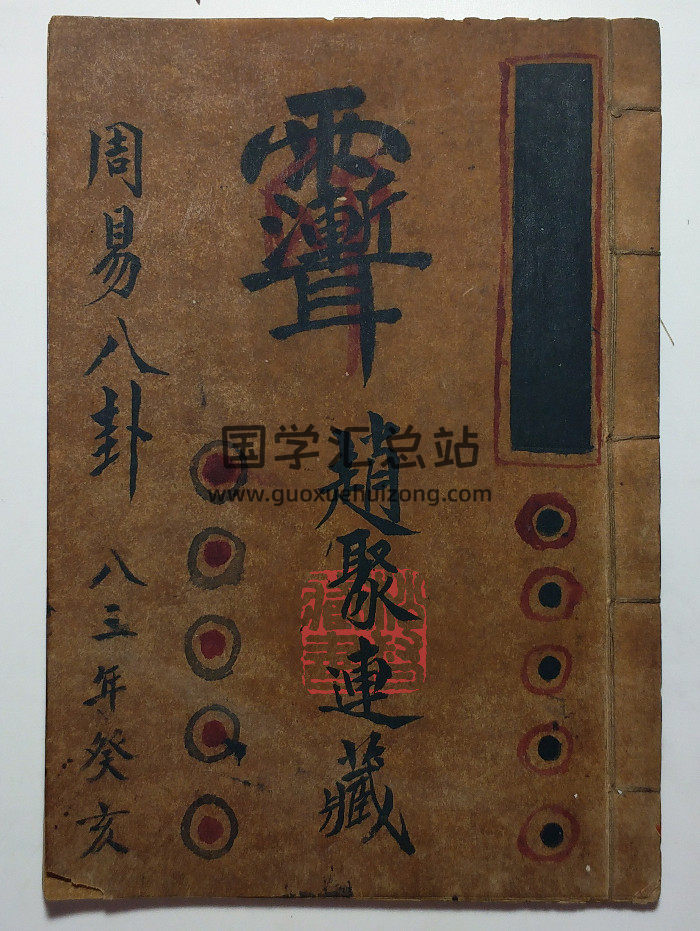 周易八卦
八三年癸亥
趙聚連藏
国学汇总站
www.guoxuehuizong.com